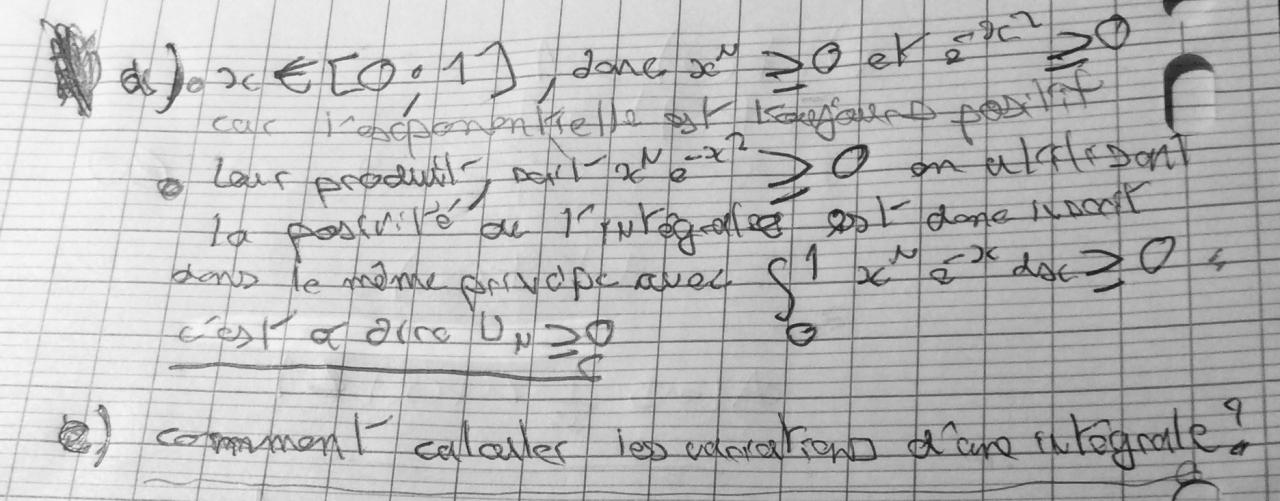 d) • x ∈ [0 ; 1], donc xⁿ ≥ 0 et e^-x² ≥ 0
car l'exponentielle est toujours positif
• Leur produit, soit xⁿ e^-x² ≥ 0 en utilisant
la positivité de l'intégrale est donc
dans le même principe avec ∫₀¹ xⁿ e^-x dx ≥ 0
c'est a dire Uₙ ≥ 0
e) comment calculer les variations d'une intégrale ?